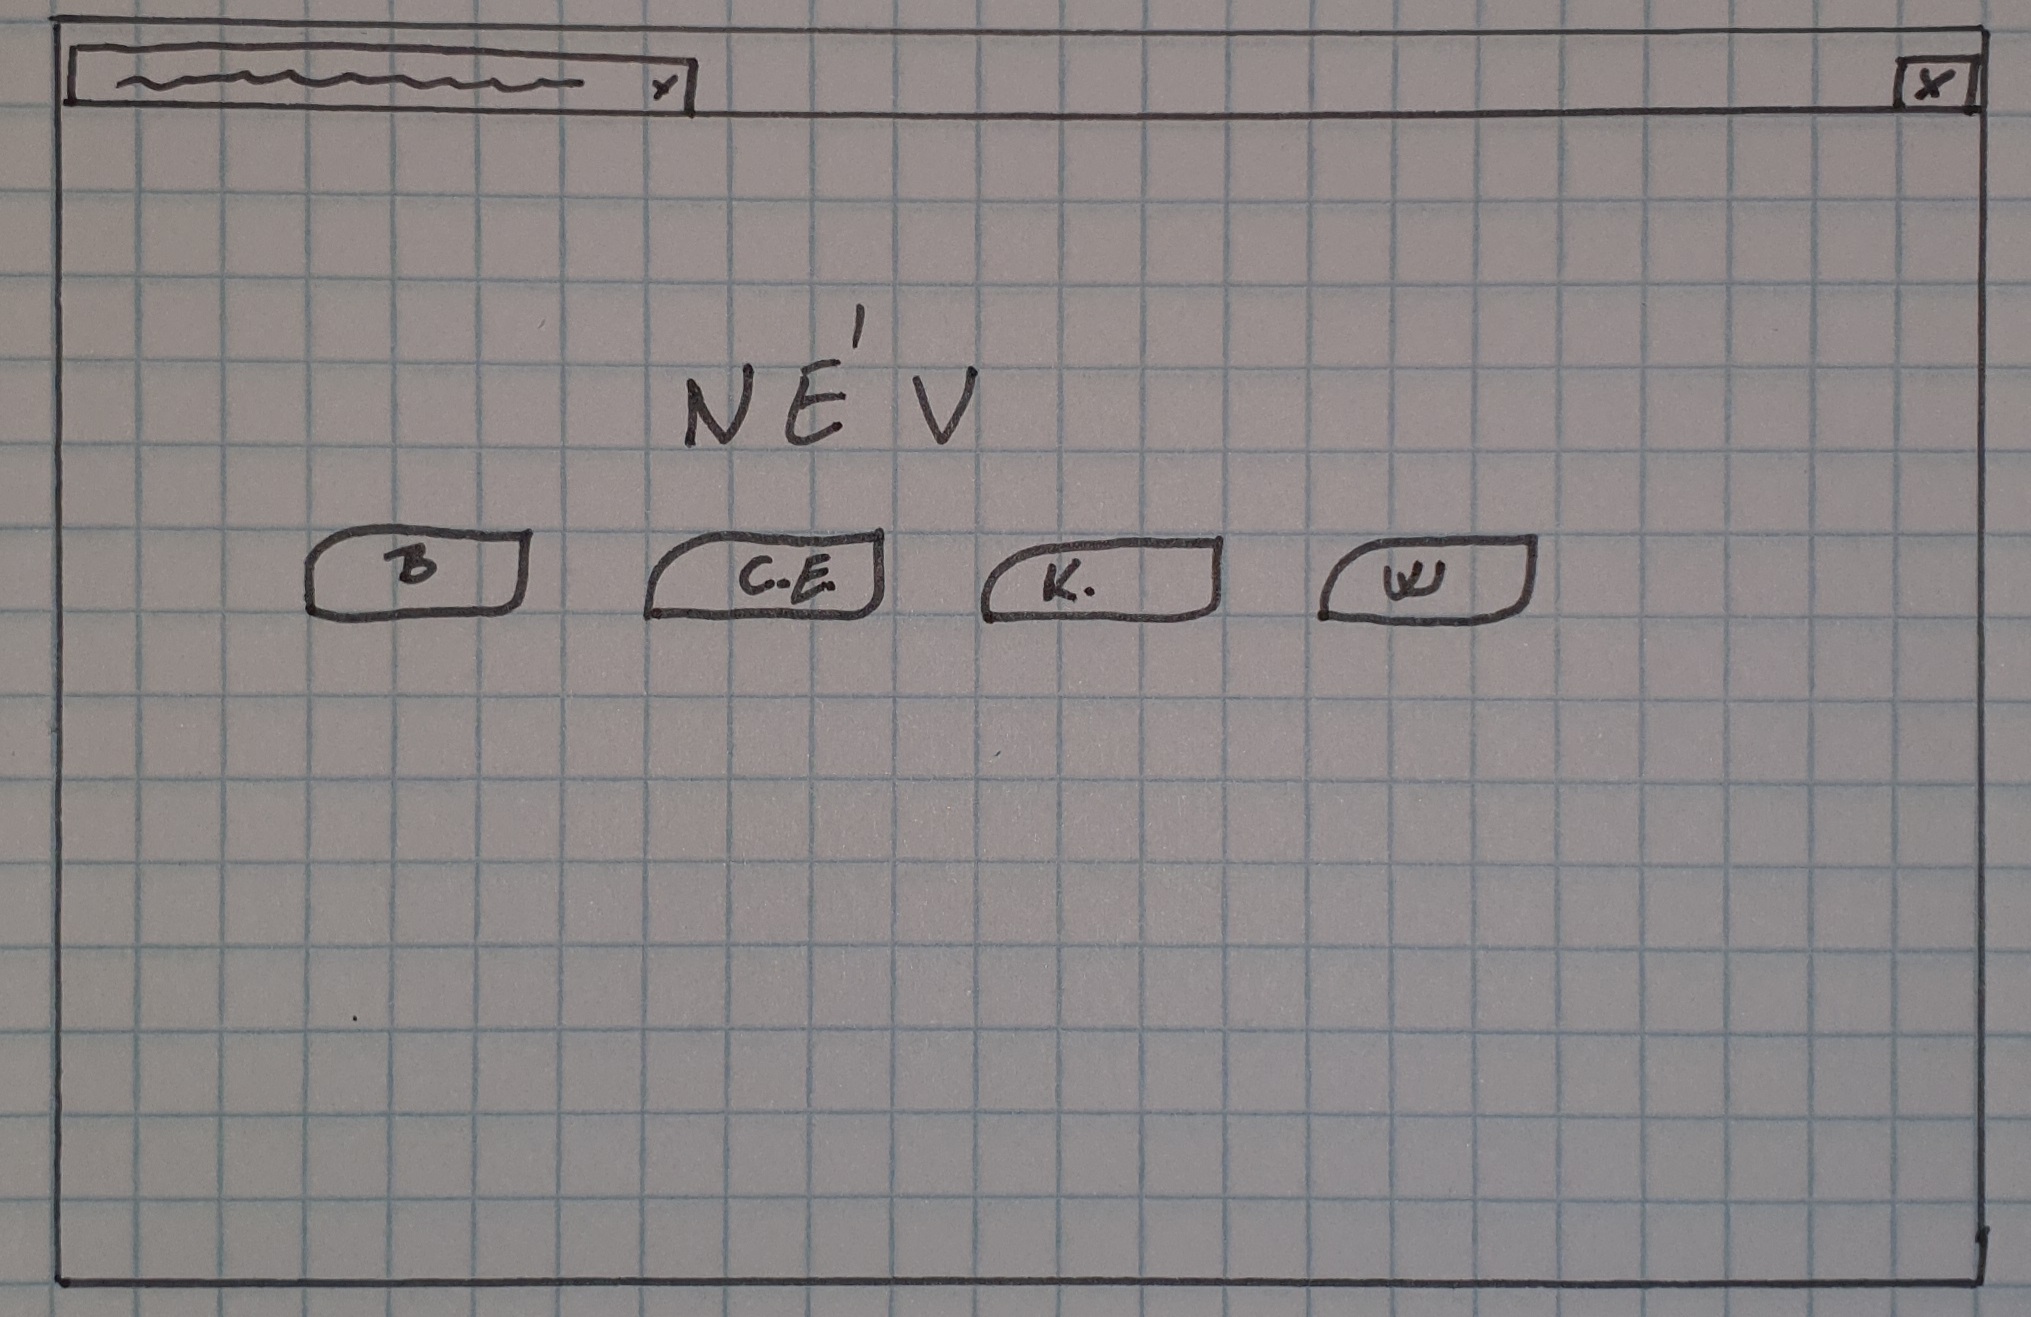 x x
NÉV
B C.E. K. W